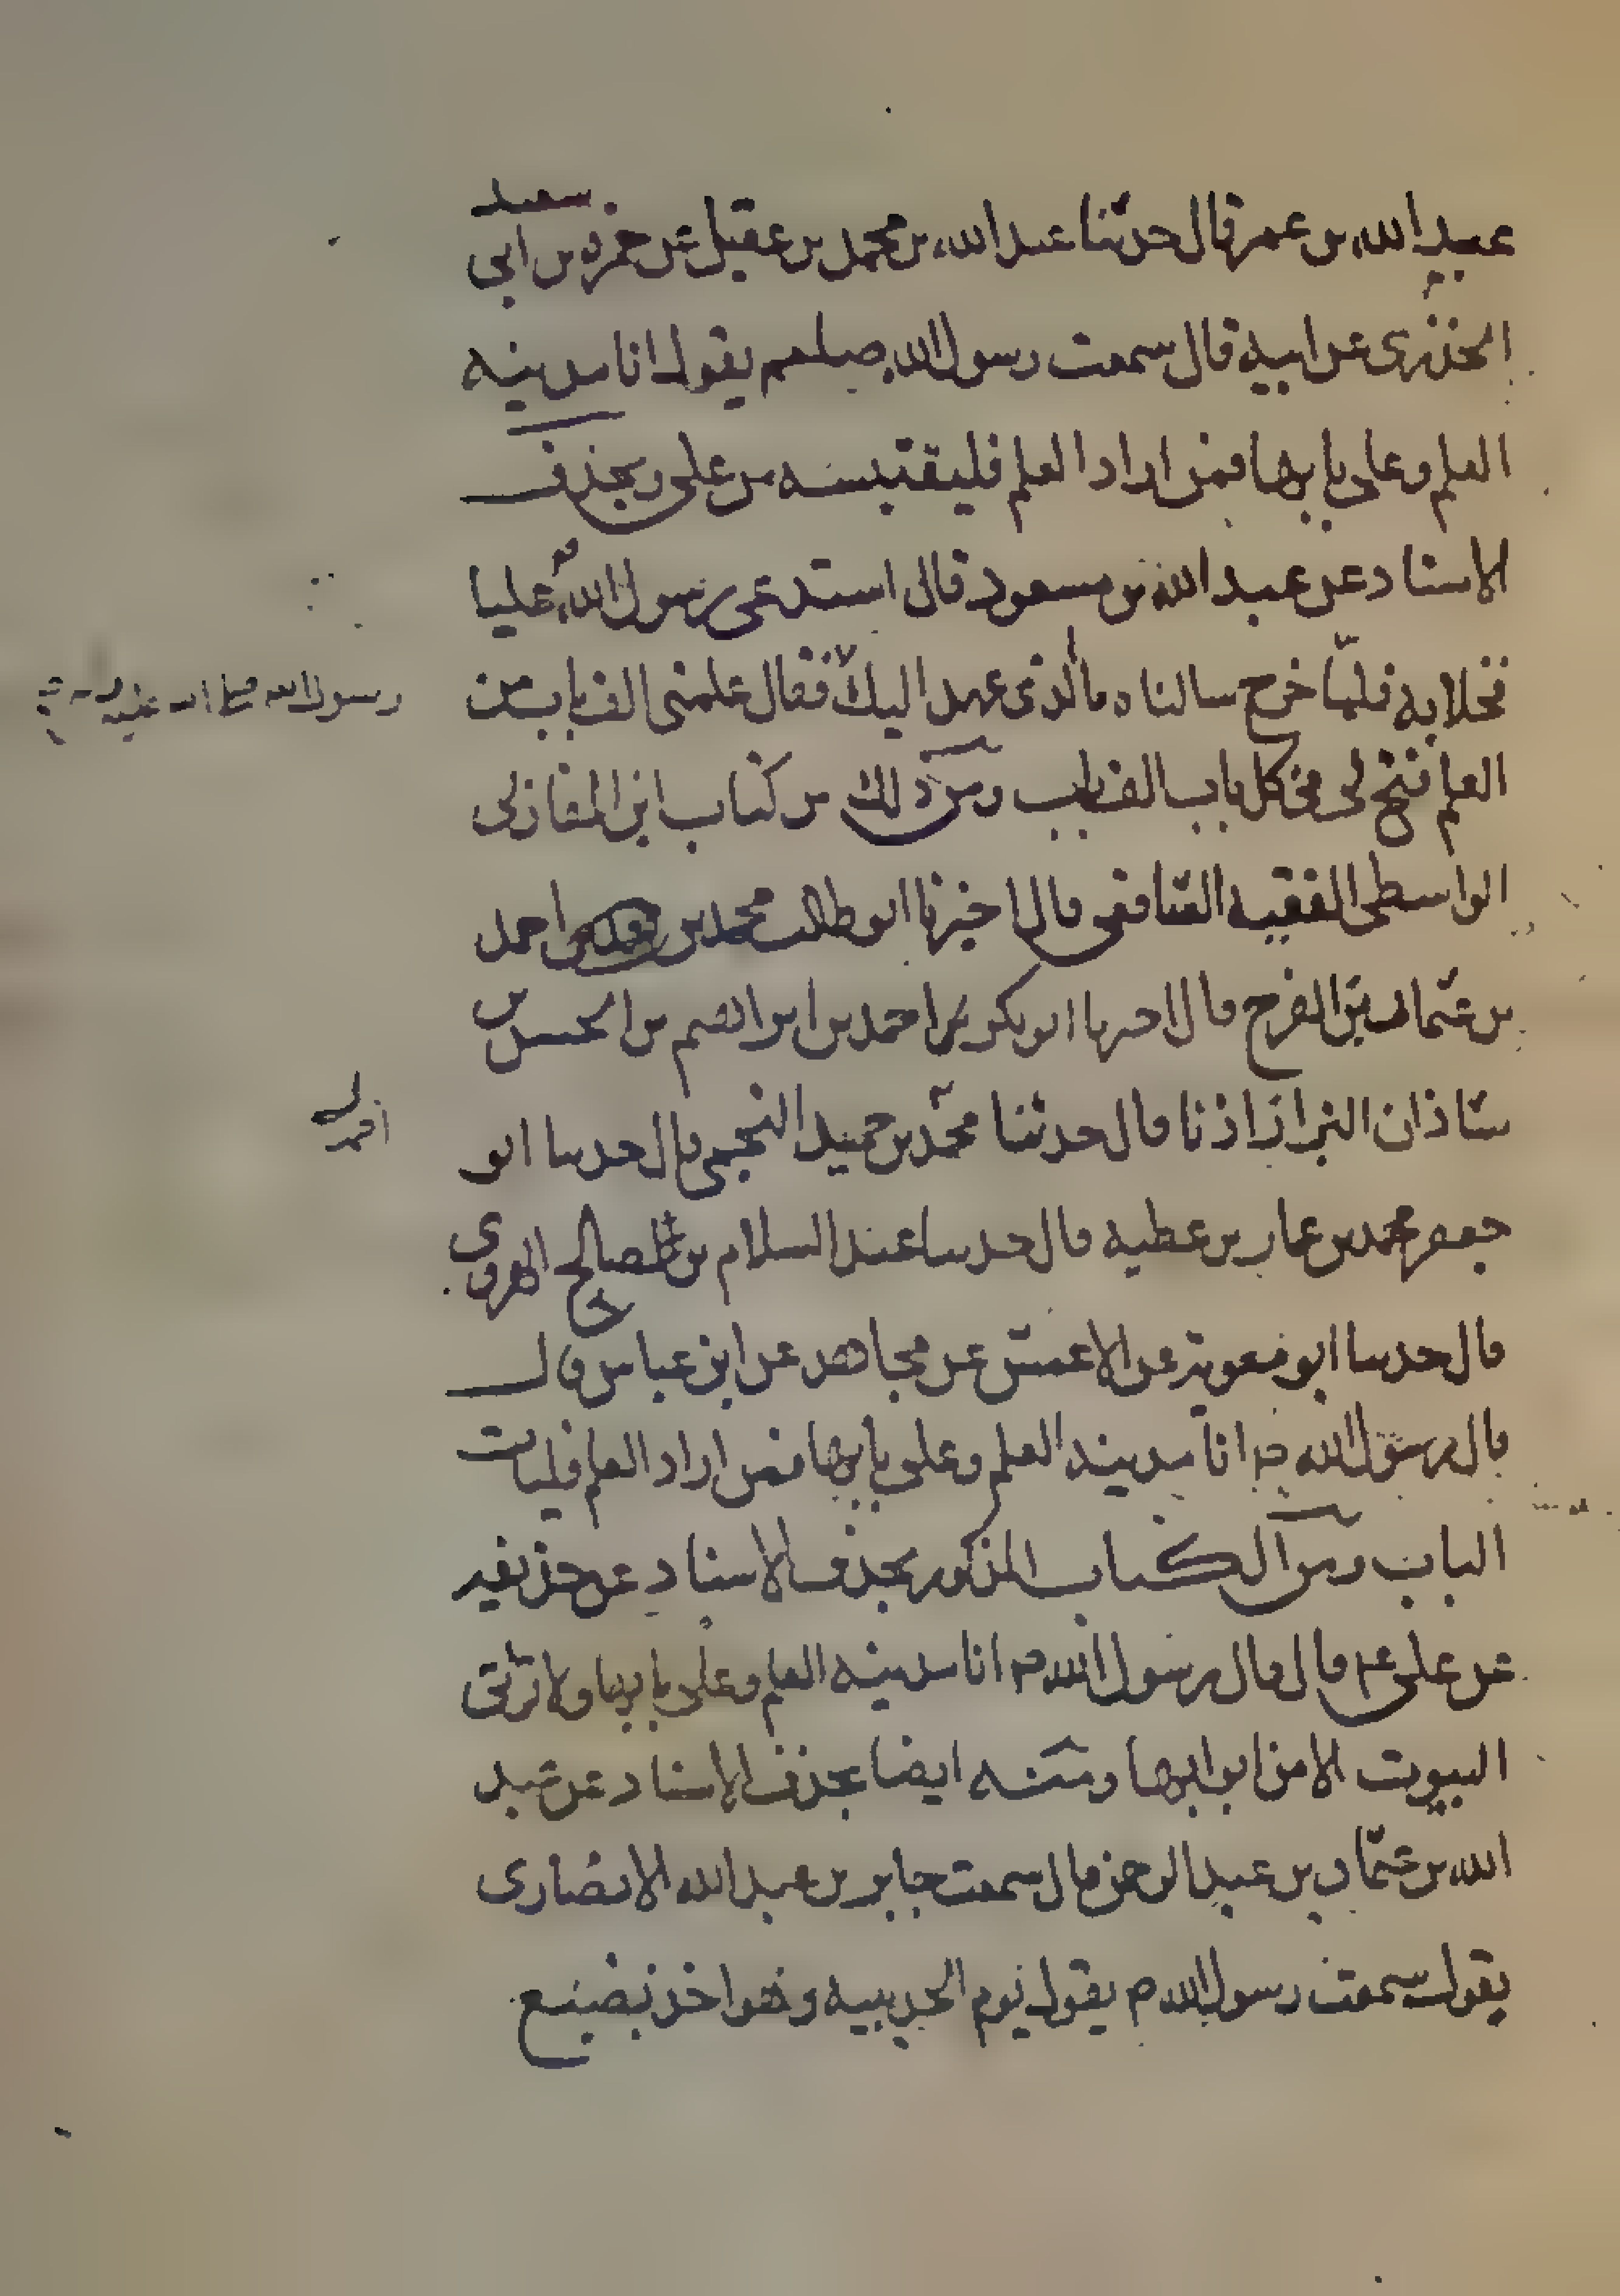 عبيد الله بن عمر قال حدثنا عبد الله بن محمد بن عقيل عن حمزه بن ابي سعيد
الخذري عن ابيه قال سمعت رسول الله صلعم يقول انا مدينه
العلم وعلي بابها فمن اراد العلم فليقتبسه من علي وبحذف
الاسناد عن عبد الله بن مسعود قال استدعى رسول الله عليا
فخلا به فلما خرج سالناه ما الذي عهد اليك فقال علمني الف باب من
العلم فتح لي في كل باب الف باب ومن ذلك من كتاب ابن المغازلي
الواسطي الفقيه الشافعي قال اخبرنا ابو طالب محمد بن احمد
بن عثمان بن الفرج قال اخبرنا ابو بكر احمد بن ابراهيم بن الحسن بن
شاذان البزاز اذنا قال حدثنا محمد بن حميد اللخمي قال حدثنا ابو
جعفر محمد بن عمار بن عطيه قال حدثنا عبد السلام بن صالح الهروي
قال حدثنا ابو معوية عن الاعمش عن مجاهد عن ابن عباس قال
قال رسول الله ص انا مدينة العلم وعلي بابها فمن اراد العلم فليات
الباب ومن الكتاب المذكور بحذف الاسناد عن حذيفة
عن علي ع قال قال رسول الله ص انا مدينه العلم وعلي بابها ولا تؤتى
البيوت الا من ابوابها ومنه ايضا بحذف الاسناد عن عبد
الله بن عثمان بن عبد الرحمن قال سمعت جابر بن عبد الله الانصاري
يقول سمعت رسول الله ص يقول يوم الحديبيه وهو اخذ بضبع
رسول الله صلى الله عليه